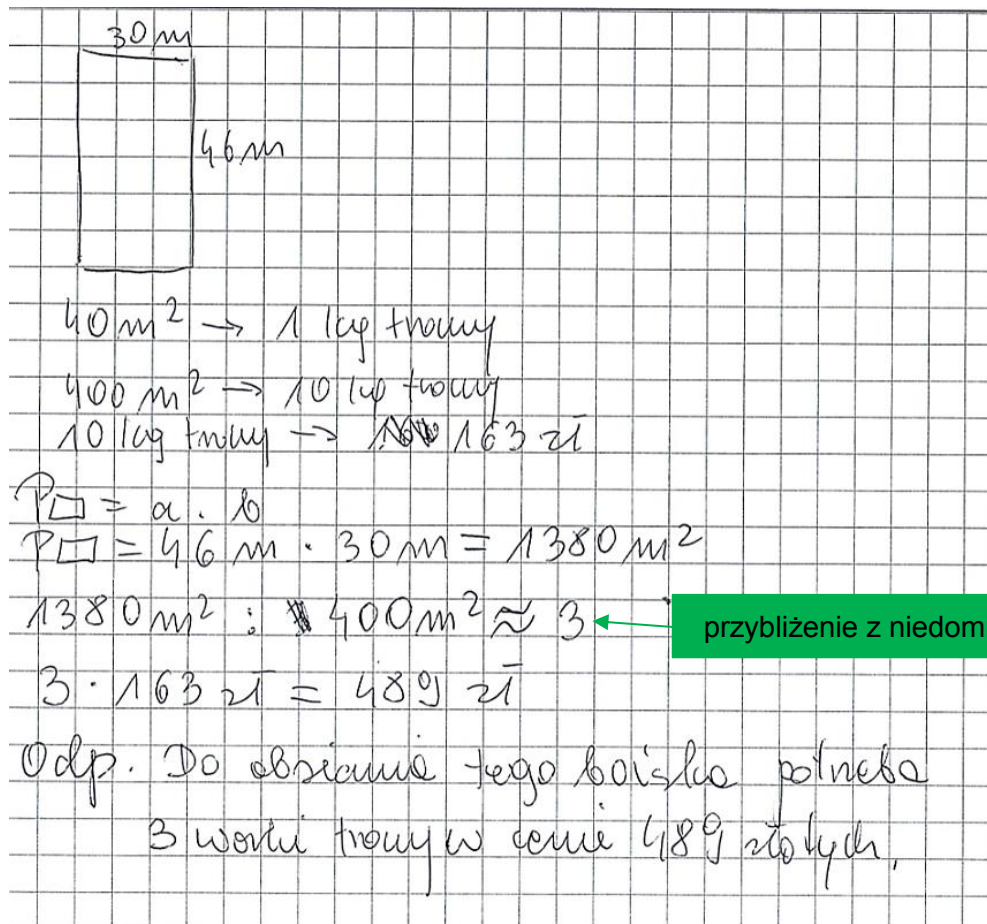 30 m
46 m
40 m² → 1 kg trawy
400 m² → 10 kg trawy
10 kg trawy → 163 zł
P▭ = a · b
P▭ = 46 m · 30 m = 1380 m²
1380 m² : 400 m² ≈ 3
przybliżenie z niedom
3 · 163 zł = 489 zł
Odp. Do obsiania tego boiska potrzeba
3 worki trawy w cenie 489 złotych.